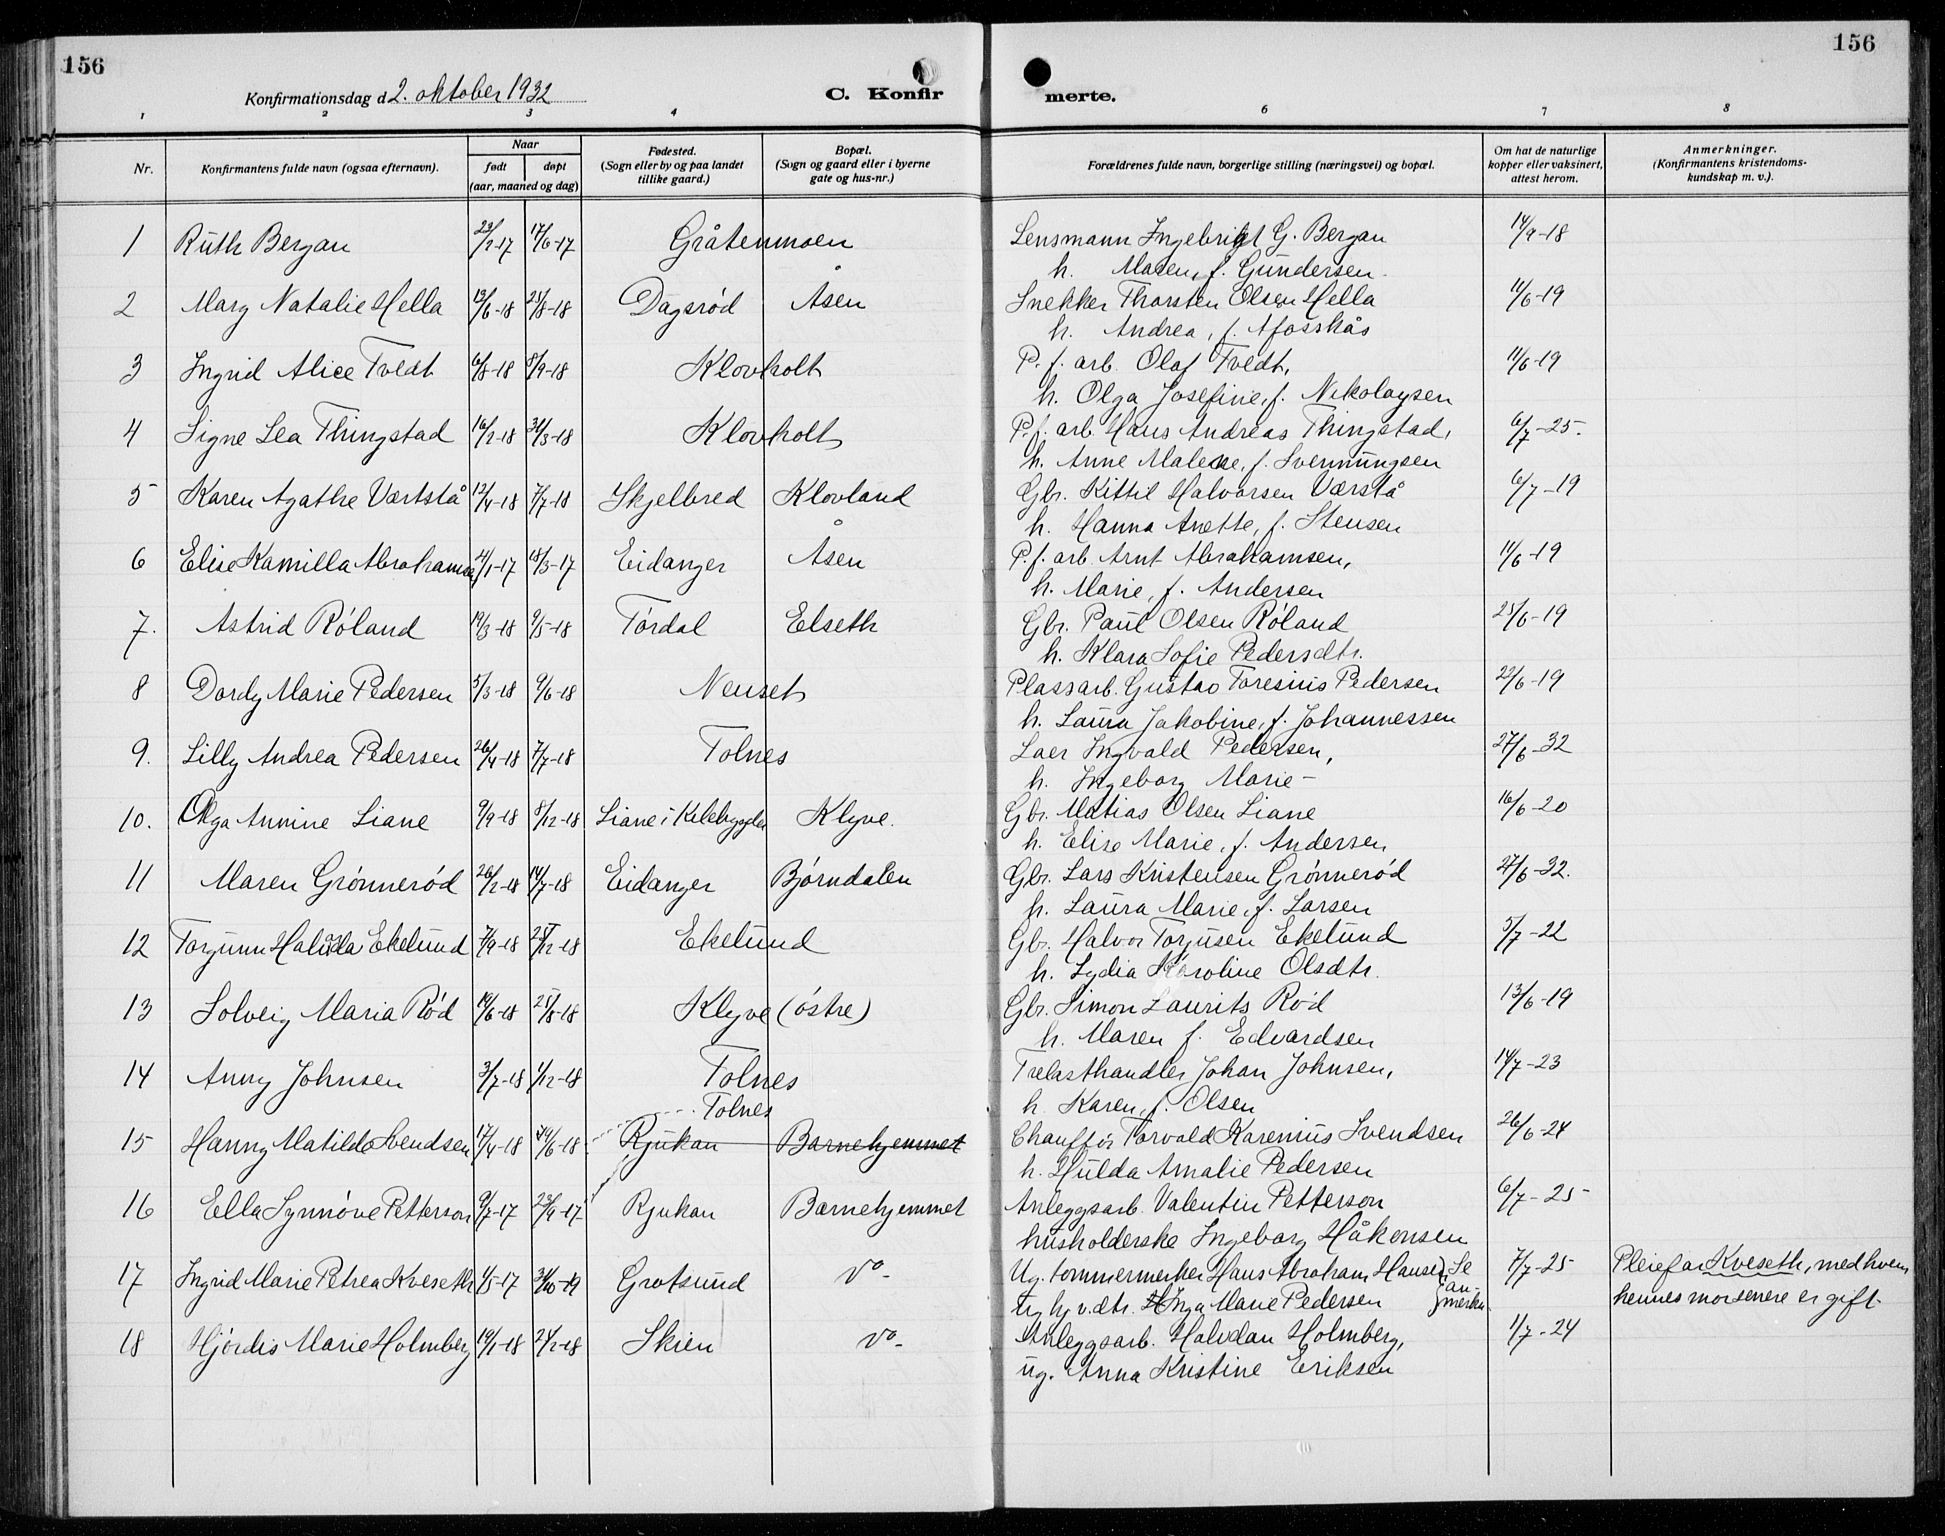 156
156
Konfirmationsdag d. 2. oktober 1932
C. Konfirmerte.
1 2 3 4 6 7 8
Nr. Konfirmantens fulde navn (ogsaa efternavn). Naar født døpt (aar, maaned og dag) Fødested. (Sogn eller by og paa landet tillike gaard.) Bopæl. (Sogn og gaard eller i byerne gate og hus-nr.) Forældrenes fulde navn, borgerlige stilling (næringsvei) og bopæl. Om hat de naturlige kopper eller vaksinert, attest herom. Anmerkninger. (Konfirmantens kristendoms-kundskap m. v.).
1 Ruth Bergan 23/2-17 17/6-17 Gråtenmoen Lensmann Ingebrigt G. Bergan 14/9-18
h. Maren, f. Gundersen.
2 Marg Natalie Hella 13/6-18 25/8-18 Dagsrød Åsen Snekker Thorsten Olsen Hella 11/6-19
h. Andrea, f. Afosskås
3 Ingrid Alice Tvedt 6/8-18 8/9-18 Klovholt P. f. arb. Olaf Tvedt, 11/6-19
h. Olga Josefine, f. Nikolaysen
4 Signe Lea Thingstad 16/2-18 31/3-18 Klovholt P. f. arb. Hans Andreas Thingstad, 6/7-25.
h. Anne Malene, f. Svennungsen
5 Karen Agathe Værtstå 12/4-18 7/7-18 Skjelbred Klovland Gbr. Kittil Halvorsen Værstå 6/7-19
h. Hanna Anette, f. Stensen
6 Elise Kamilla Abrahamsen 21/1-17 18/3-17 Eidanger Åsen P. f. arb. Arnt Abrahamsen, 11/6-19
h. Marie, f. Andersen
7. Astrid Røland 19/3-18 9/5-18 Tørdal Elseth Gbr. Paul Olsen Røland 25/6-19
h. Klara Sofie Pedersdtr.
8 Dordy Marie Pedersen 5/3-18 9/6-18 Nenset Plassarb. Gustav Toresius Pedersen 22/6-19
h. Laura Jakobine, f. Johannessen
9. Lilly Andrea Pedersen 26/4-18 7/7-18 Tolnes Laer Ingvald Pedersen, 27/6-32
h. Ingeborg Marie –
10. Olga Annine Liane 9/9-18 8/12-18 Liane i Kilebygden Klyve. Gbr. Matias Olsen Liane 16/6-20
h. Elise Marie, f. Andersen
11 Maren Grønnerød 26/2-18 14/7-18 Eidanger Bjørndalen Gbr. Lars Kristensen Grønnerød 27/6-32.
h. Laura Marie, f. Larsen
12 Torgunn Halvda Ekelund 7/9-18 25/12-18 Ekelund Gbr. Halvor Torjusen Ekelund 5/7-22
h. Lydia Karoline Olsdtr.
13 Solveig Maria Rød 19/6-18 25/8-18 Klyve (østre) Gbr. Simon Laurits Rød 13/6-19
h. Maren f. Edvardsen
14 Anny Johnsen 3/7-18 1/12-18 Tolnes Trelasthandler Johan Johnsen, 14/7-23
h. Karen, f. Olsen
Tolnes
15 Hanny Matilde Svendsen 17/4-18 30/6-18 Rjukan Barnehjemmet Chauffør Torvald Karenius Svendsen 26/6-24
h. Hulda Amalie Pedersen
16 Ella Synnøve Petterson 9/7-17 23/9-17 Rjukan Barnehjemmet Anleggsarb. Valentin Petterson 6/7-25
husholderske Ingeborg Håkonsen
17 Ingrid Marie Petrea Kveseth 1/5-17 31/10-19 Grøtsund vo- Ug. tømmermerker Hans Abraham Hansen, Se anmerkn. 7/7-25 Pleiefar Kveseth, med hvem
ug hj v. dtr. Inga Marie Pedersen hennes mor senere er gift
18 Hjørdis Marie Holmberg 19/1-18 24/2-18 Skien vo- Anleggsarb. Halvdan Holmberg, 1/7-24
ug. Anna Kristine Eriksen